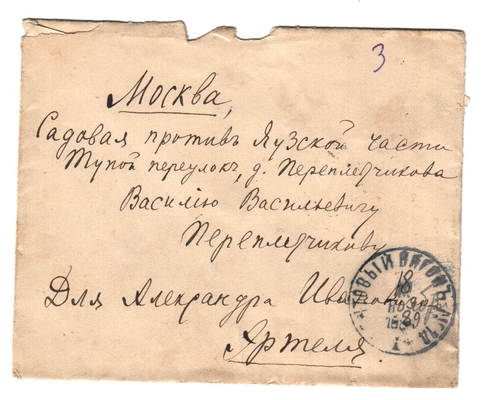 3
Москва,
Садовая противъ Яузской части
Тупой переулокъ, д. Переплетчикова
Василію Васильевичу
Переплетчикову
Для Александра Ивановича
Яртеля.
ПОЧТОВЫЙ ВАГОНЪ